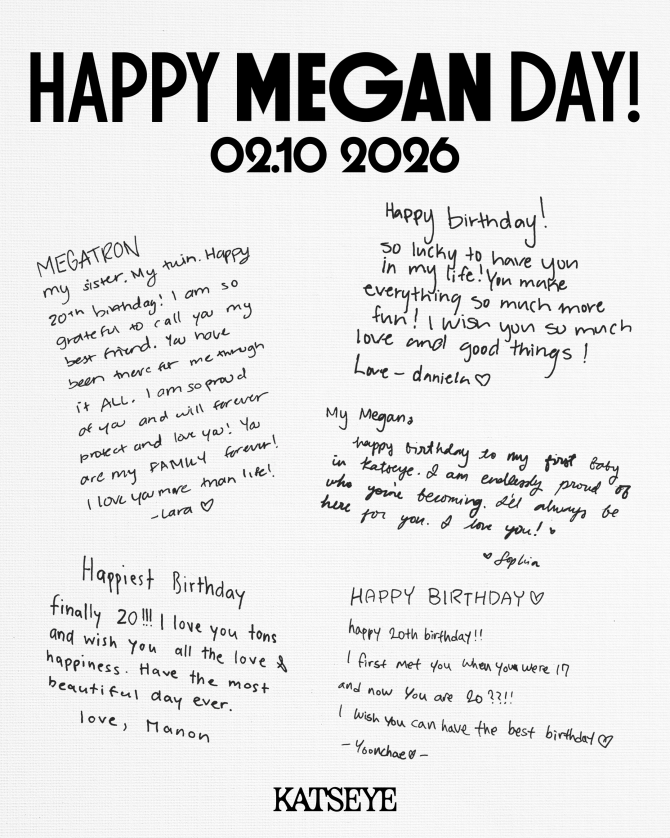 HAPPY MEGAN DAY!
02.10 2026
MEGATRON
my sister. My twin. Happy
20th birthday! I am so
grateful to call you my
best friend. You have
been there for me through
it ALL. I am so proud
of you and will forever
protect and love you! You
are my FAMILY forever!
I love you more than life!
-Lara ♡
Happy birthday!
so lucky to have you
in my life! You make
everything so much more
fun! I wish you so much
love and good things!
Love - daniela ♡
My Megan,
happy birthday to my first baby
in Katseye. I am endlessly proud of
who you're becoming. I'll always be
here for you. I love you! ♥
♥ Sophia
Happiest Birthday
finally 20!!! I love you tons
and wish you all the love &
happiness. Have the most
beautiful day ever.
love, Manon
HAPPY BIRTHDAY ♡
happy 20th birthday!!
I first met you when you were 17
and now you are 20??!!
I wish you can have the best birthday ♡
- Yoonchae ♡ -
KATSEYE